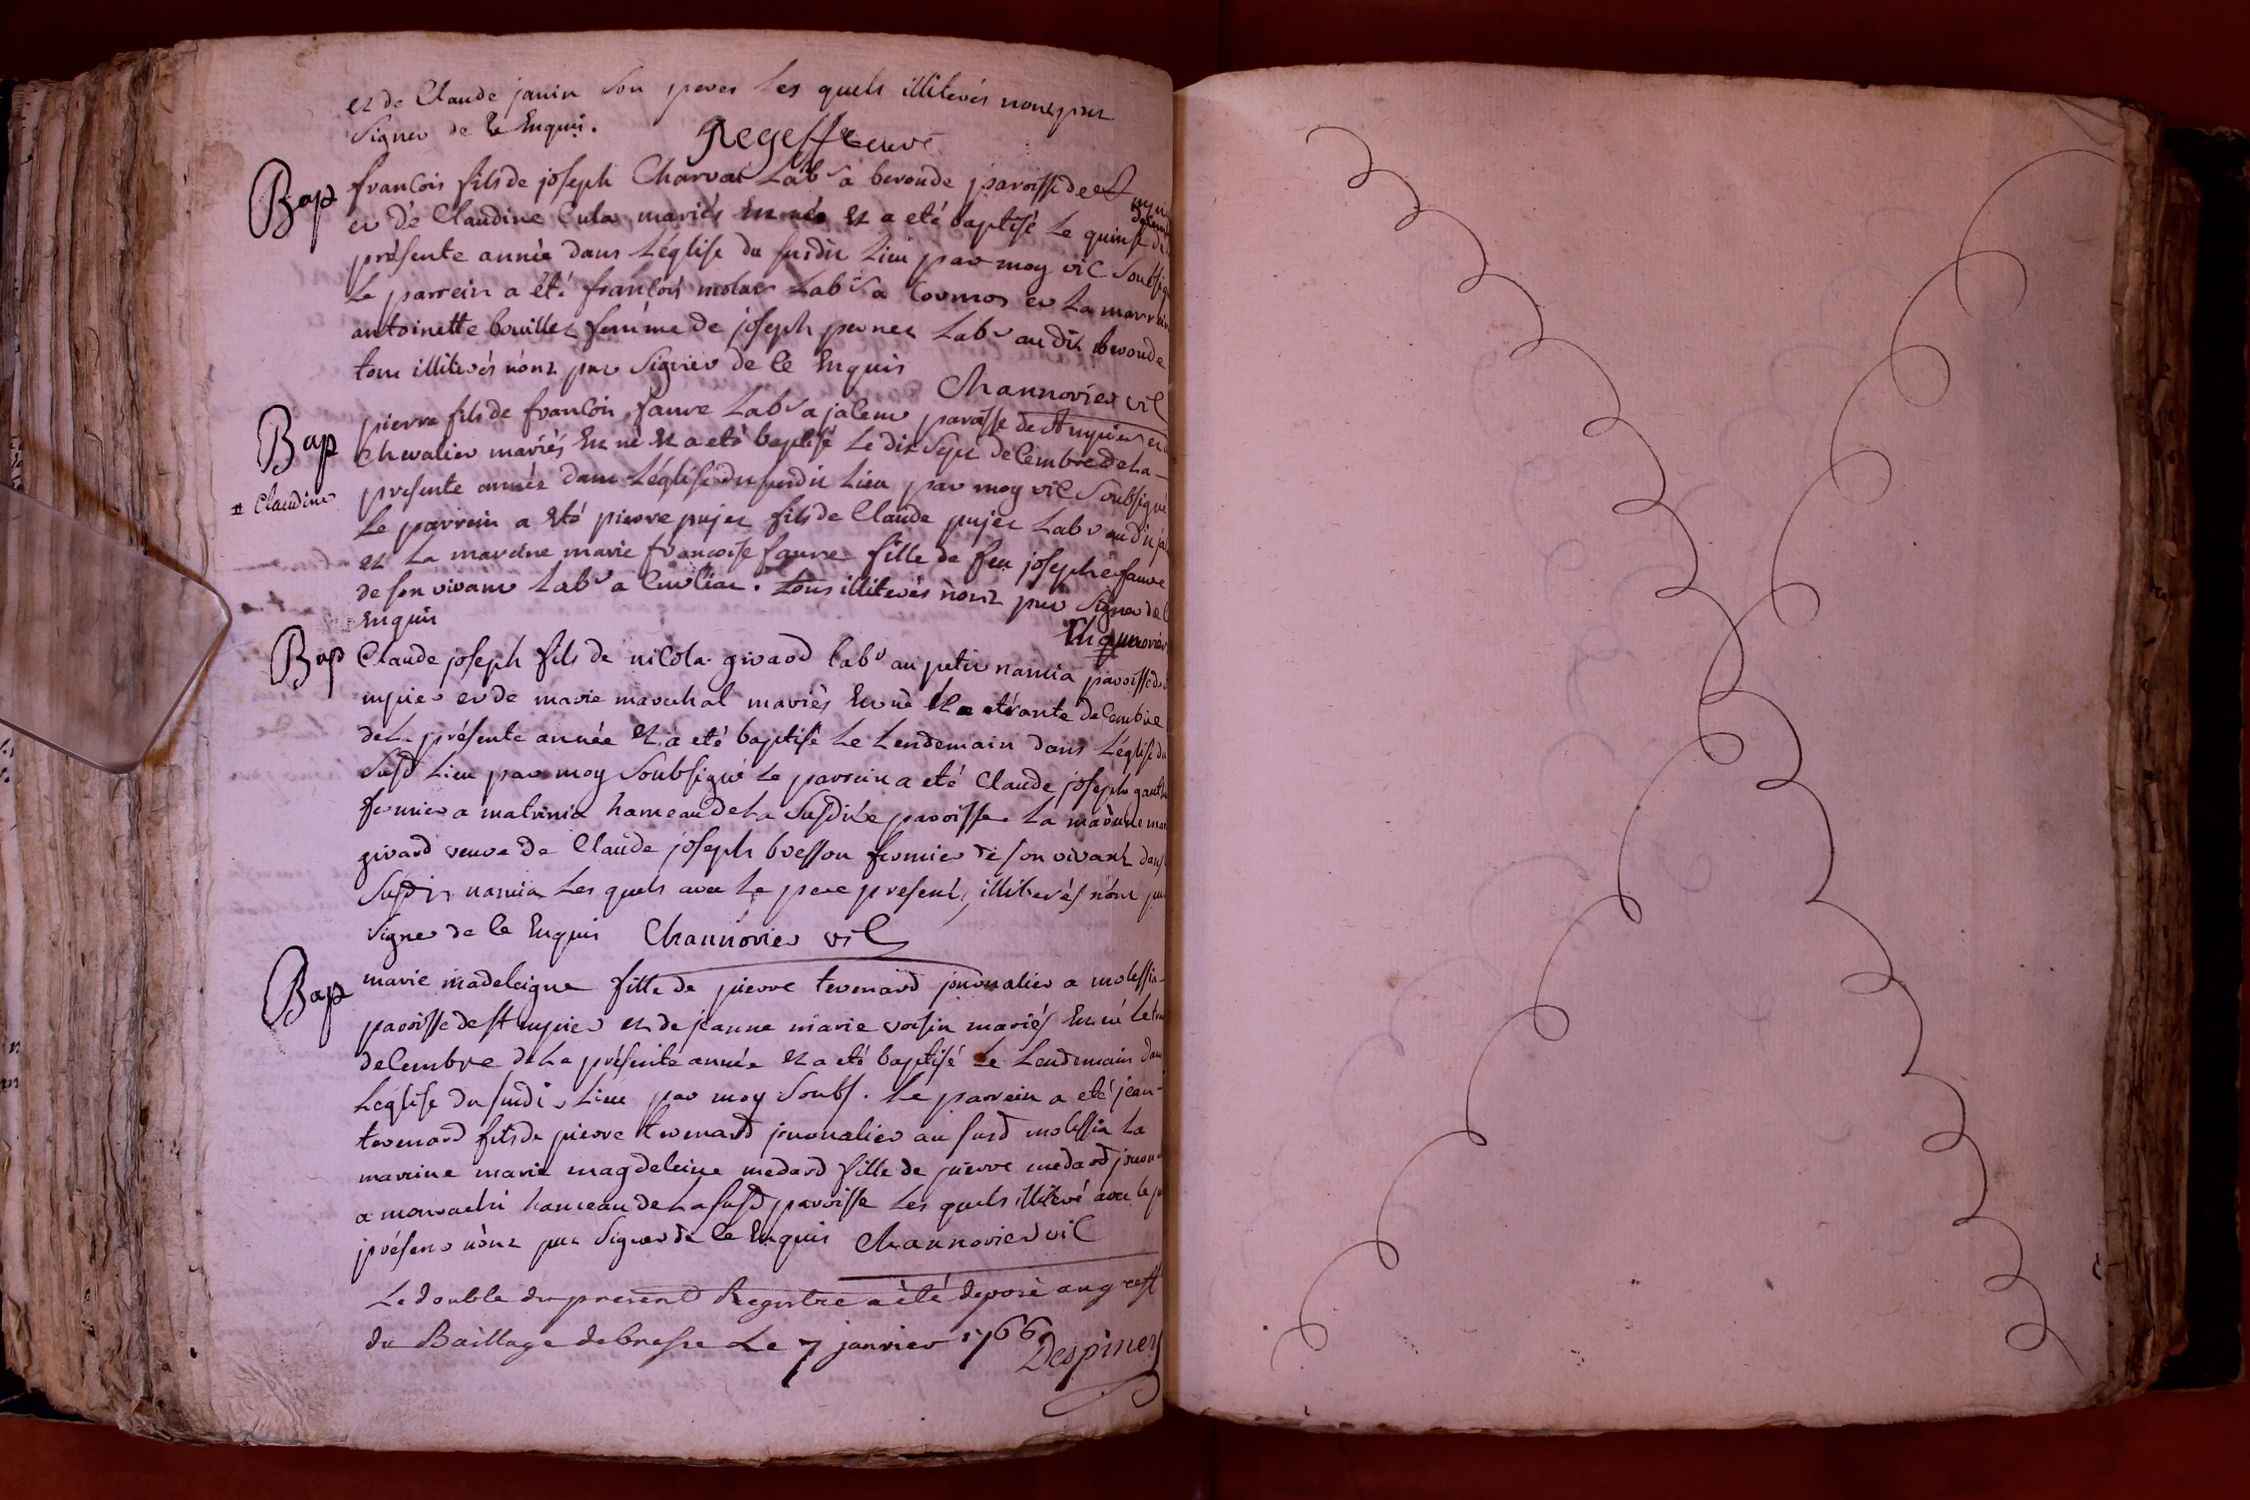 et de Claude janin son perer les quels illiterés nont pus
signer de ce Enquis.
Regeffe curé
Bap françois fils de joseph Charvat Lab r a beronde paroisse de St
et de Claudine Cula mariés est né et a eté baptisé le quinse
présente année dans L'église du susdit Lieu par moy vic soussig
Le parrein a eté françois molar Lab r a Cormos et La marrein
antoinette bouillet femme de joseph pernet Lab r au dit beronde
tous illiterés n'ont pus signer de ce Enquis
Channorier vic
Bap pierre fils de françois faure Lab r a jaleur paroisse de St mpier et
Chevalier mariés Est né Et a eté baptisé Le dix sept decembre de La
# Claudine
presente année dans L'église du susdit Lieu par moy vic soubsigné
Le parrein a Eté pierre pujet fils de Claude pujet Lab r au dit ja
et La mareine marie françoise faure fille de feu joseph faure
de son vivant Lab r a Curliat. tous illiterés n'ont pus signer de
Enquis
Channorier
Bap Claude joseph fils de nicola girard lab r au petit namia paroisse de
mpier et de marie marechal mariés Est né Le trante decembre
de La présente année Et a eté baptisé Le Lendemain dans L'église du
susd Lieu par moy soubsigné Le parrein a eté Claude joseph
fermier a matrinia hameau de La susdite paroisse La mareine
girard veuve de Claude joseph bresson fermier de son vivant
susdit namia Les quels avec Le pere present, illiterés n'ont
signer de ce Enquis Channorier vic
Bap marie madeleigne fille de pierre tevenard journalier a molessia
paroisse de St mpier et de jeanne marie voisin mariés Est né
decembre de La présente année Et a eté baptisé Le Lendemain
L'église du susdit Lieu par moy soubs. Le parrein a eté jean
tevenard fils de pierre tevenard journalier au susd molessia La
mareine marie magdeleine medard fille de pierre medard
a hameau de La susd paroisse Les quels illiteré avec le
présens n'ont pus signer de ce Enquis Channorier vic
Le double du present Registre a été deposé au greff
du Baillage de bresse Le 7 janvier 1766.
Despiney